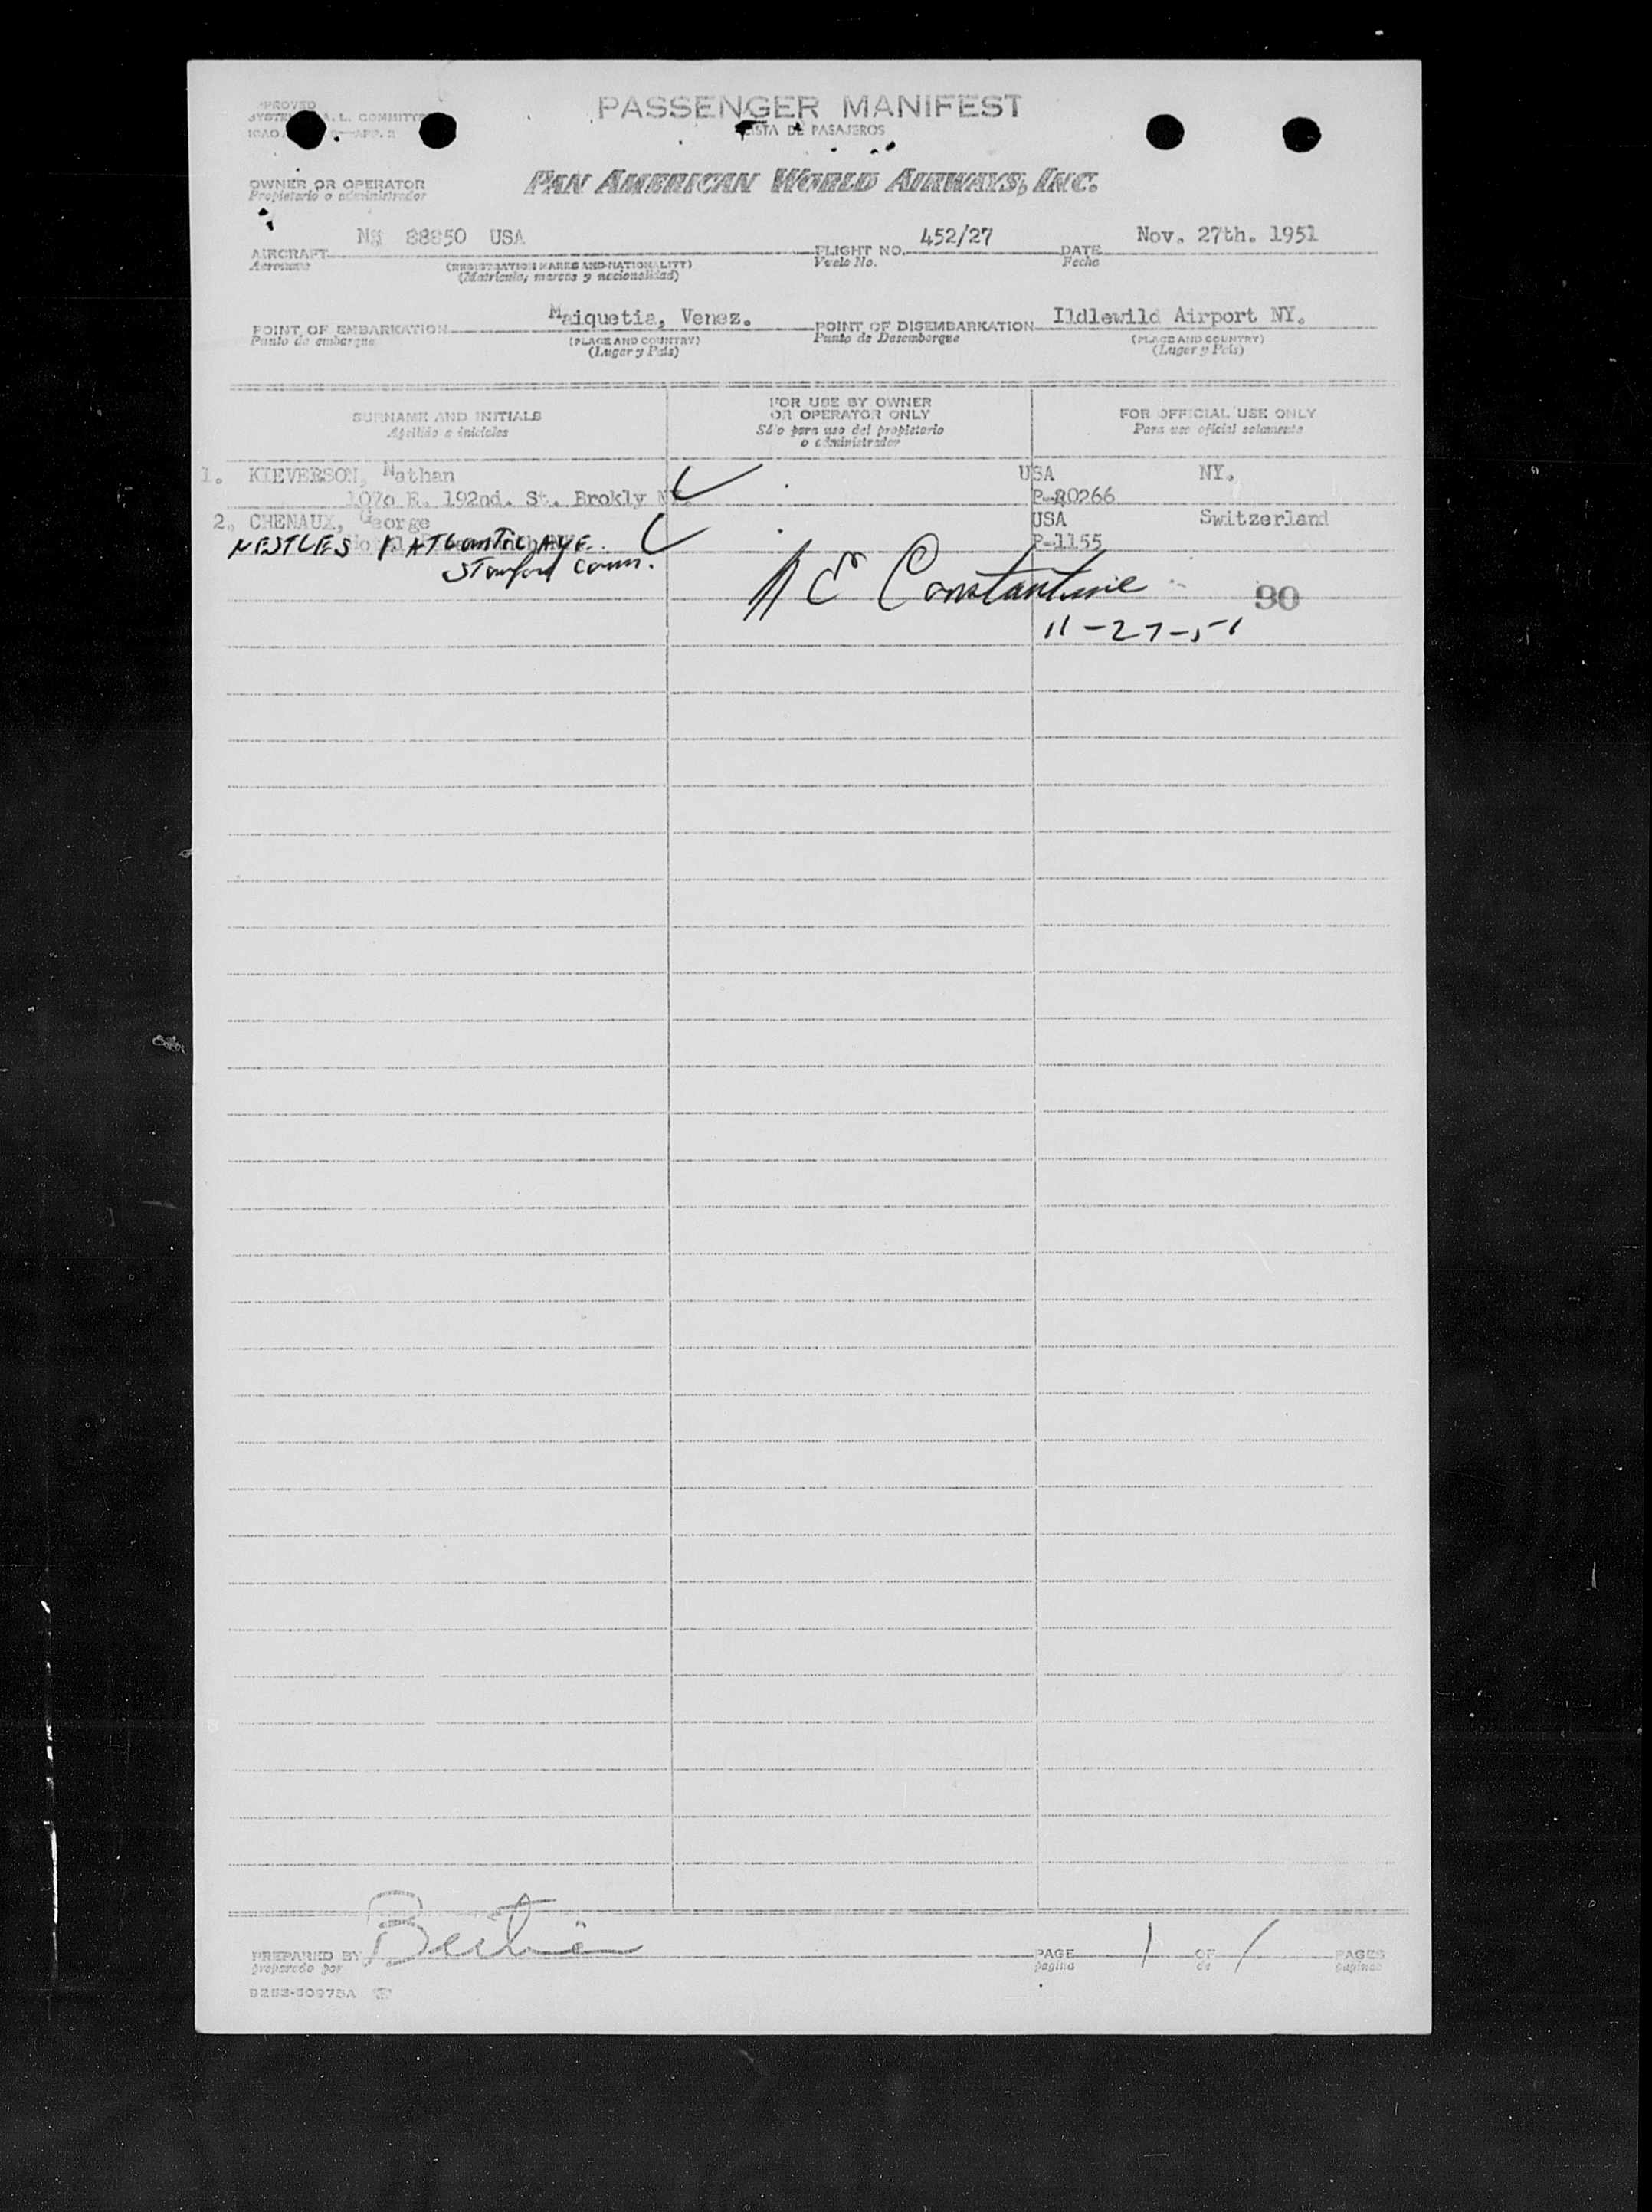 PASSENGER MANIFEST
LISTA DE PASAJEROS
PAN AMERICAN WORLD AIRWAYS, INC.
OWNER OR OPERATOR
Propietario o administrador
AIRCRAFT 88850 USA FLIGHT NO. 452/27 DATE Nov. 27th. 1951
Aeronave (REGISTRATION MARKS AND NATIONALITY) Vuelo No. Fecha
(Matricula, marcas y nacionalidad)
POINT OF EMBARKATION Maiquetia, Venez. POINT OF DISEMBARKATION Ildlewild Airport NY.
Punto de embarque (PLACE AND COUNTRY) Punto de Desembarque (PLACE AND COUNTRY)
(Lugar y Pais) (Lugar y Pais)
SURNAME AND INITIALS FOR USE BY OWNER OR OPERATOR ONLY FOR OFFICIAL USE ONLY
Apellido e iniciales Sólo para uso del propietario o administrador Para uso oficial solamente
1. KIEVERSON, Nathan USA NY.
1070 E. 192nd. St. Brokly NY. P-20266
2. CHENAUX, George USA Switzerland
NESTLES ATLANTIC AVE. P-1155
Stamford Conn.
A E Constantine 90
11-27-51
PREPARED BY PAGE 1 OF 1 PAGES
preparado por pagina de paginas